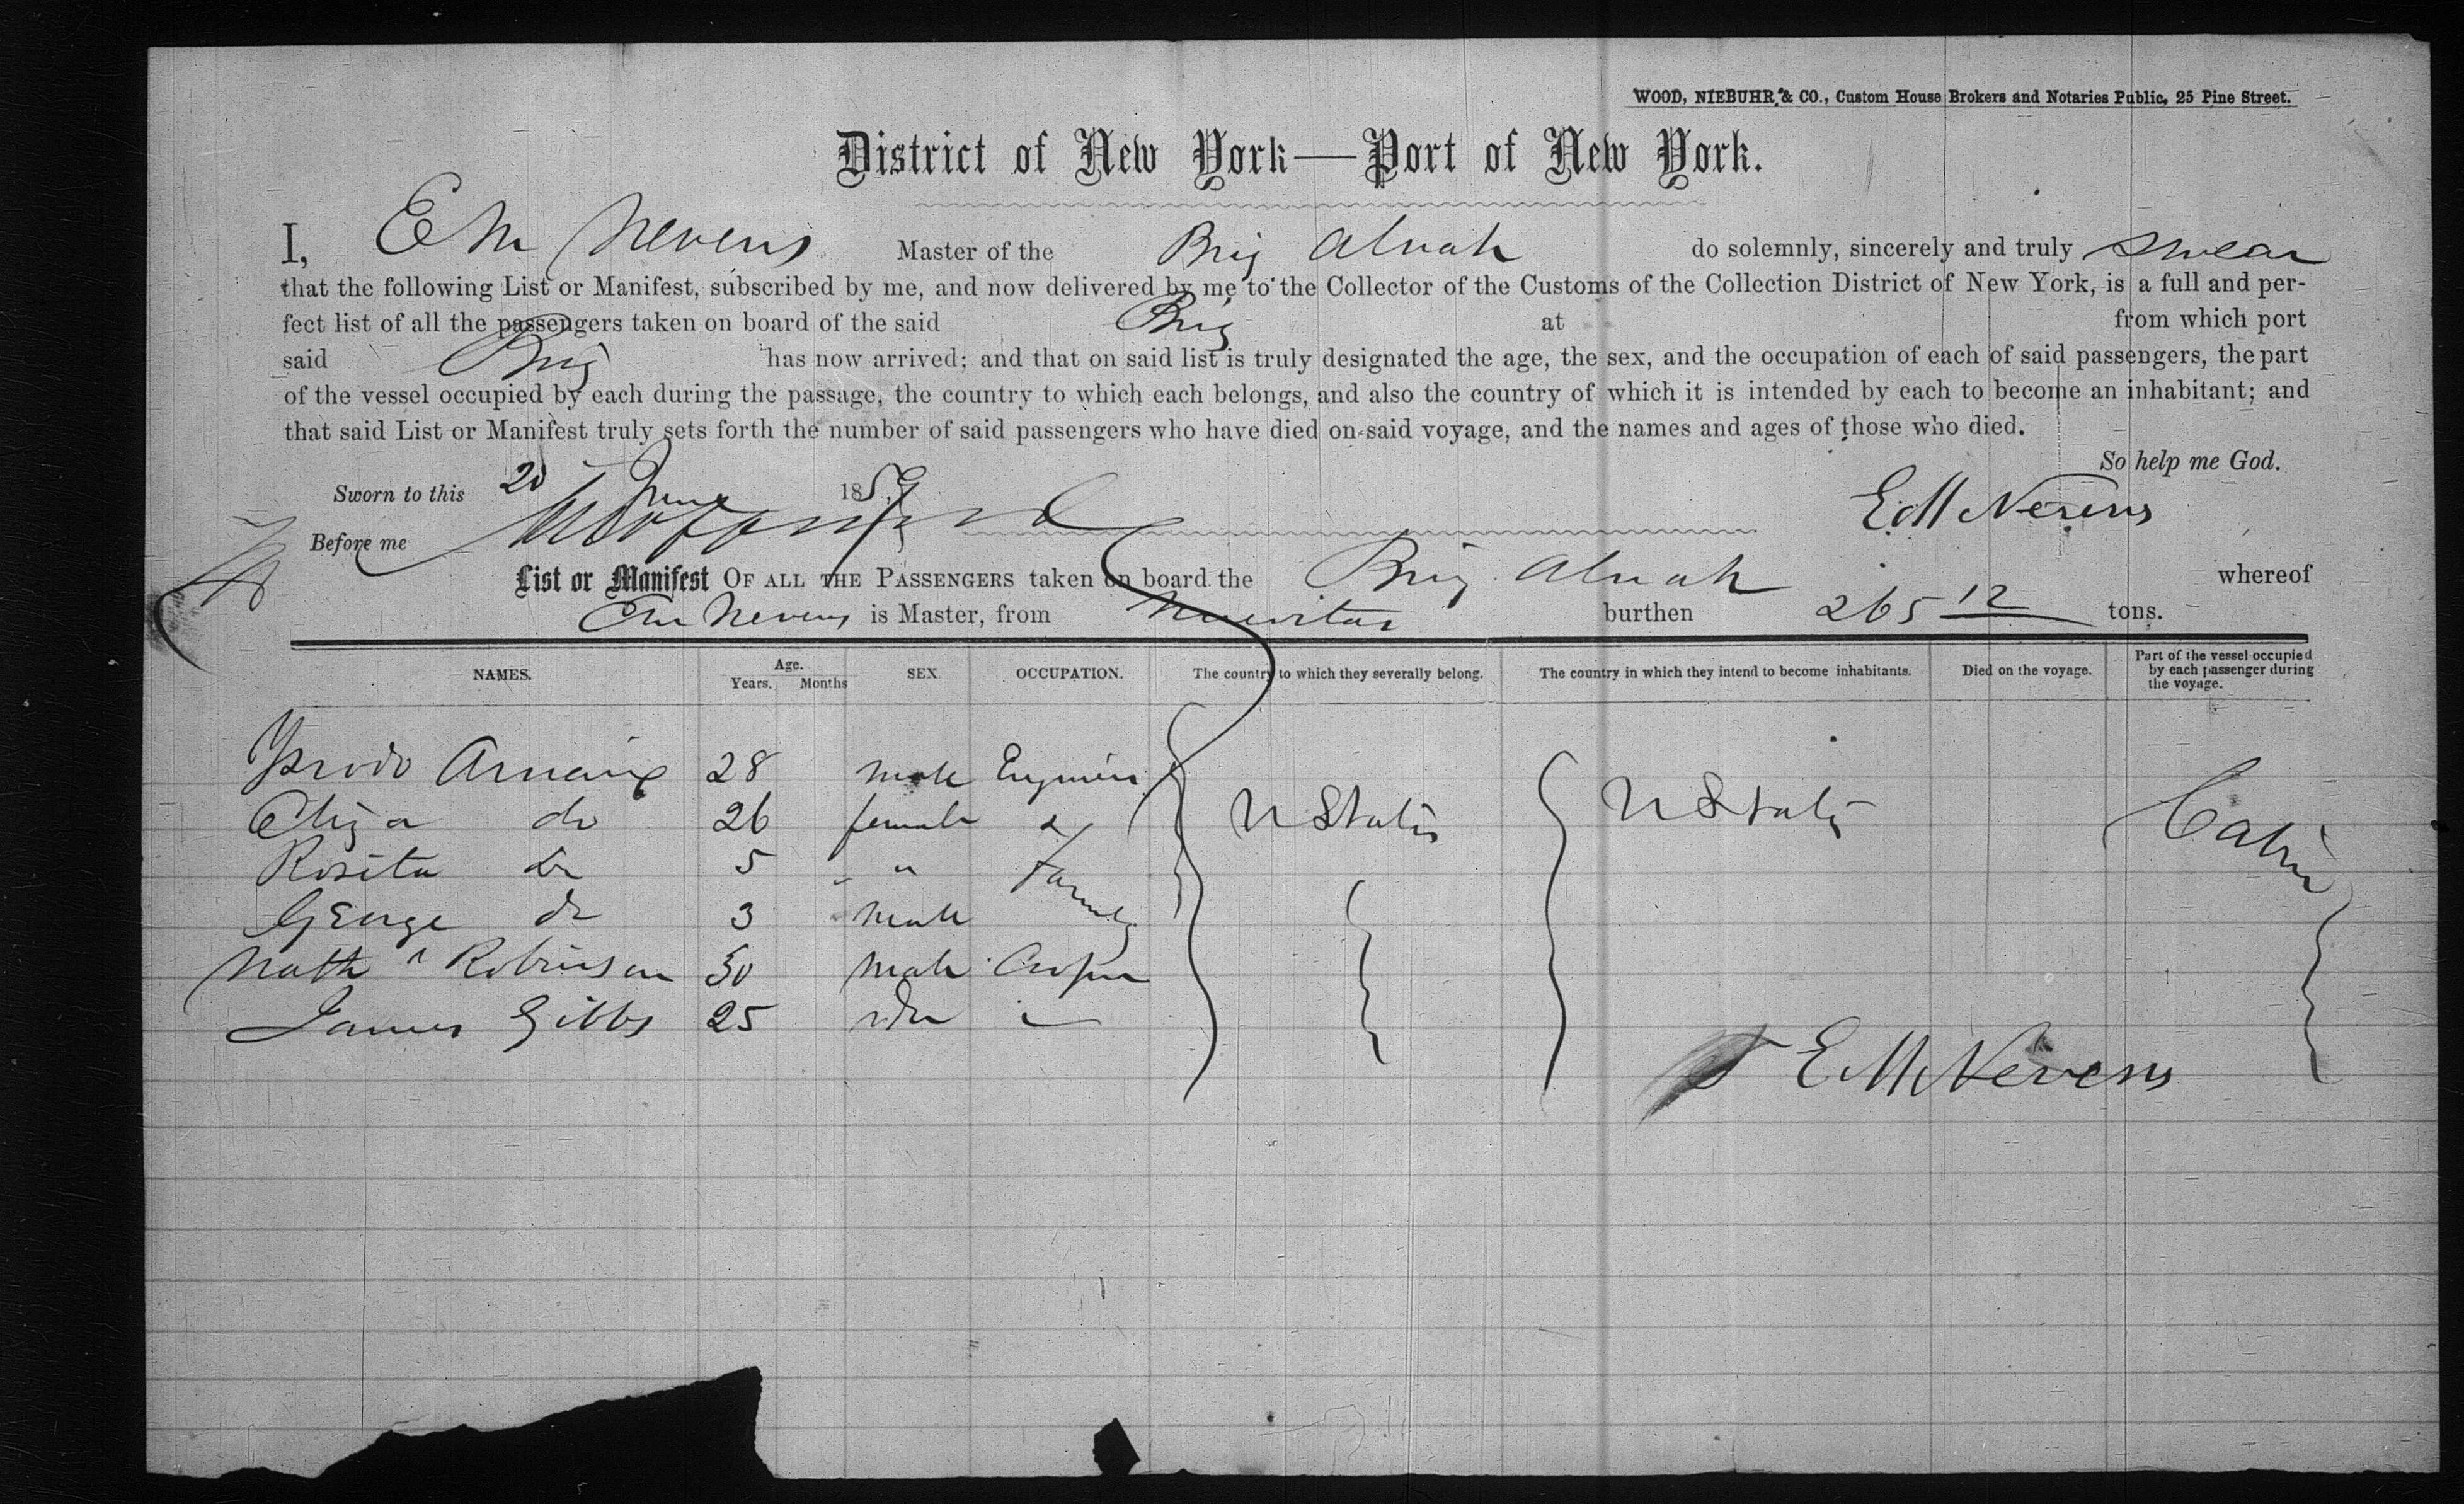 WOOD, NIEBUHR, & CO., Custom House Brokers and Notaries Public, 25 Pine Street.
District of New York—Port of New York.
I, E M Nevens Master of the Brig Alvah do solemnly, sincerely and truly swear
that the following List or Manifest, subscribed by me, and now delivered by me to the Collector of the Customs of the Collection District of New York, is a full and per-
fect list of all the passengers taken on board of the said Brig at from which port
said Brig has now arrived; and that on said list is truly designated the age, the sex, and the occupation of each of said passengers, the part
of the vessel occupied by each during the passage, the country to which each belongs, and also the country of which it is intended by each to become an inhabitant; and
that said List or Manifest truly sets forth the number of said passengers who have died on said voyage, and the names and ages of those who died.
So help me God.
Sworn to this 20 June 1859
E M Nevens
Before me
List or Manifest OF ALL THE PASSENGERS taken on board the Brig Alvah whereof
E M Nevens is Master, from Nuevitas burthen 265 12 tons.
NAMES. Age. Years. Months SEX. OCCUPATION. The country to which they severally belong. The country in which they intend to become inhabitants. Died on the voyage. Part of the vessel occupied by each passenger during the voyage.
28 male Engineer
Eliza do 26 female & U States U States Cabin
Rosita do 5 " Family
George do 3 male
Nath Robinson 30 male Cooper
James Gibbs 25 do
E M Nevens